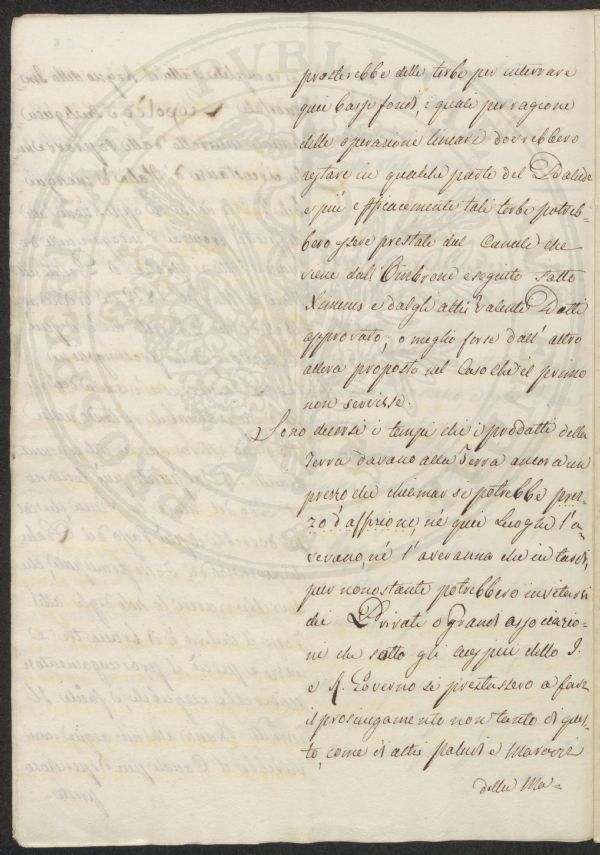 presterebbe delle torbe per interrare
quei bassi fondi, i quali per ragione
delle operazione lineari dovrebbero
restare in qualche parte del Padule
e più efficacemente tali torbe potreb=
bero essere prestate dal Canale che
viene dall'Ombrone eseguito sotto
Ximenes e dalgli altri valenti Dotti
approvato, o meglio forse dall'altro
allora proposto nel Caso che il primo
non servisse.
Sono diversi i tempi che i prodotti della
Terra davano alla Terra ancora un
prezzo che chiamar si potrebbe prez=
zo d'affezione, nè quei Luoghi l'a=
vevano, nè l'averanno che in tardi,
pur nonostante potrebbero invitarsi
dei Privati o grandi associazio=
ni che sotto gli auspici dello I.
e R. Governo si prestassero a fare
il prosciugamento non tanto di ques=
to, come di altri paludi e Marazzi
della Ma=